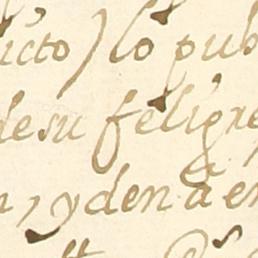 icto) lo pub
desu feligre
n, y den a en